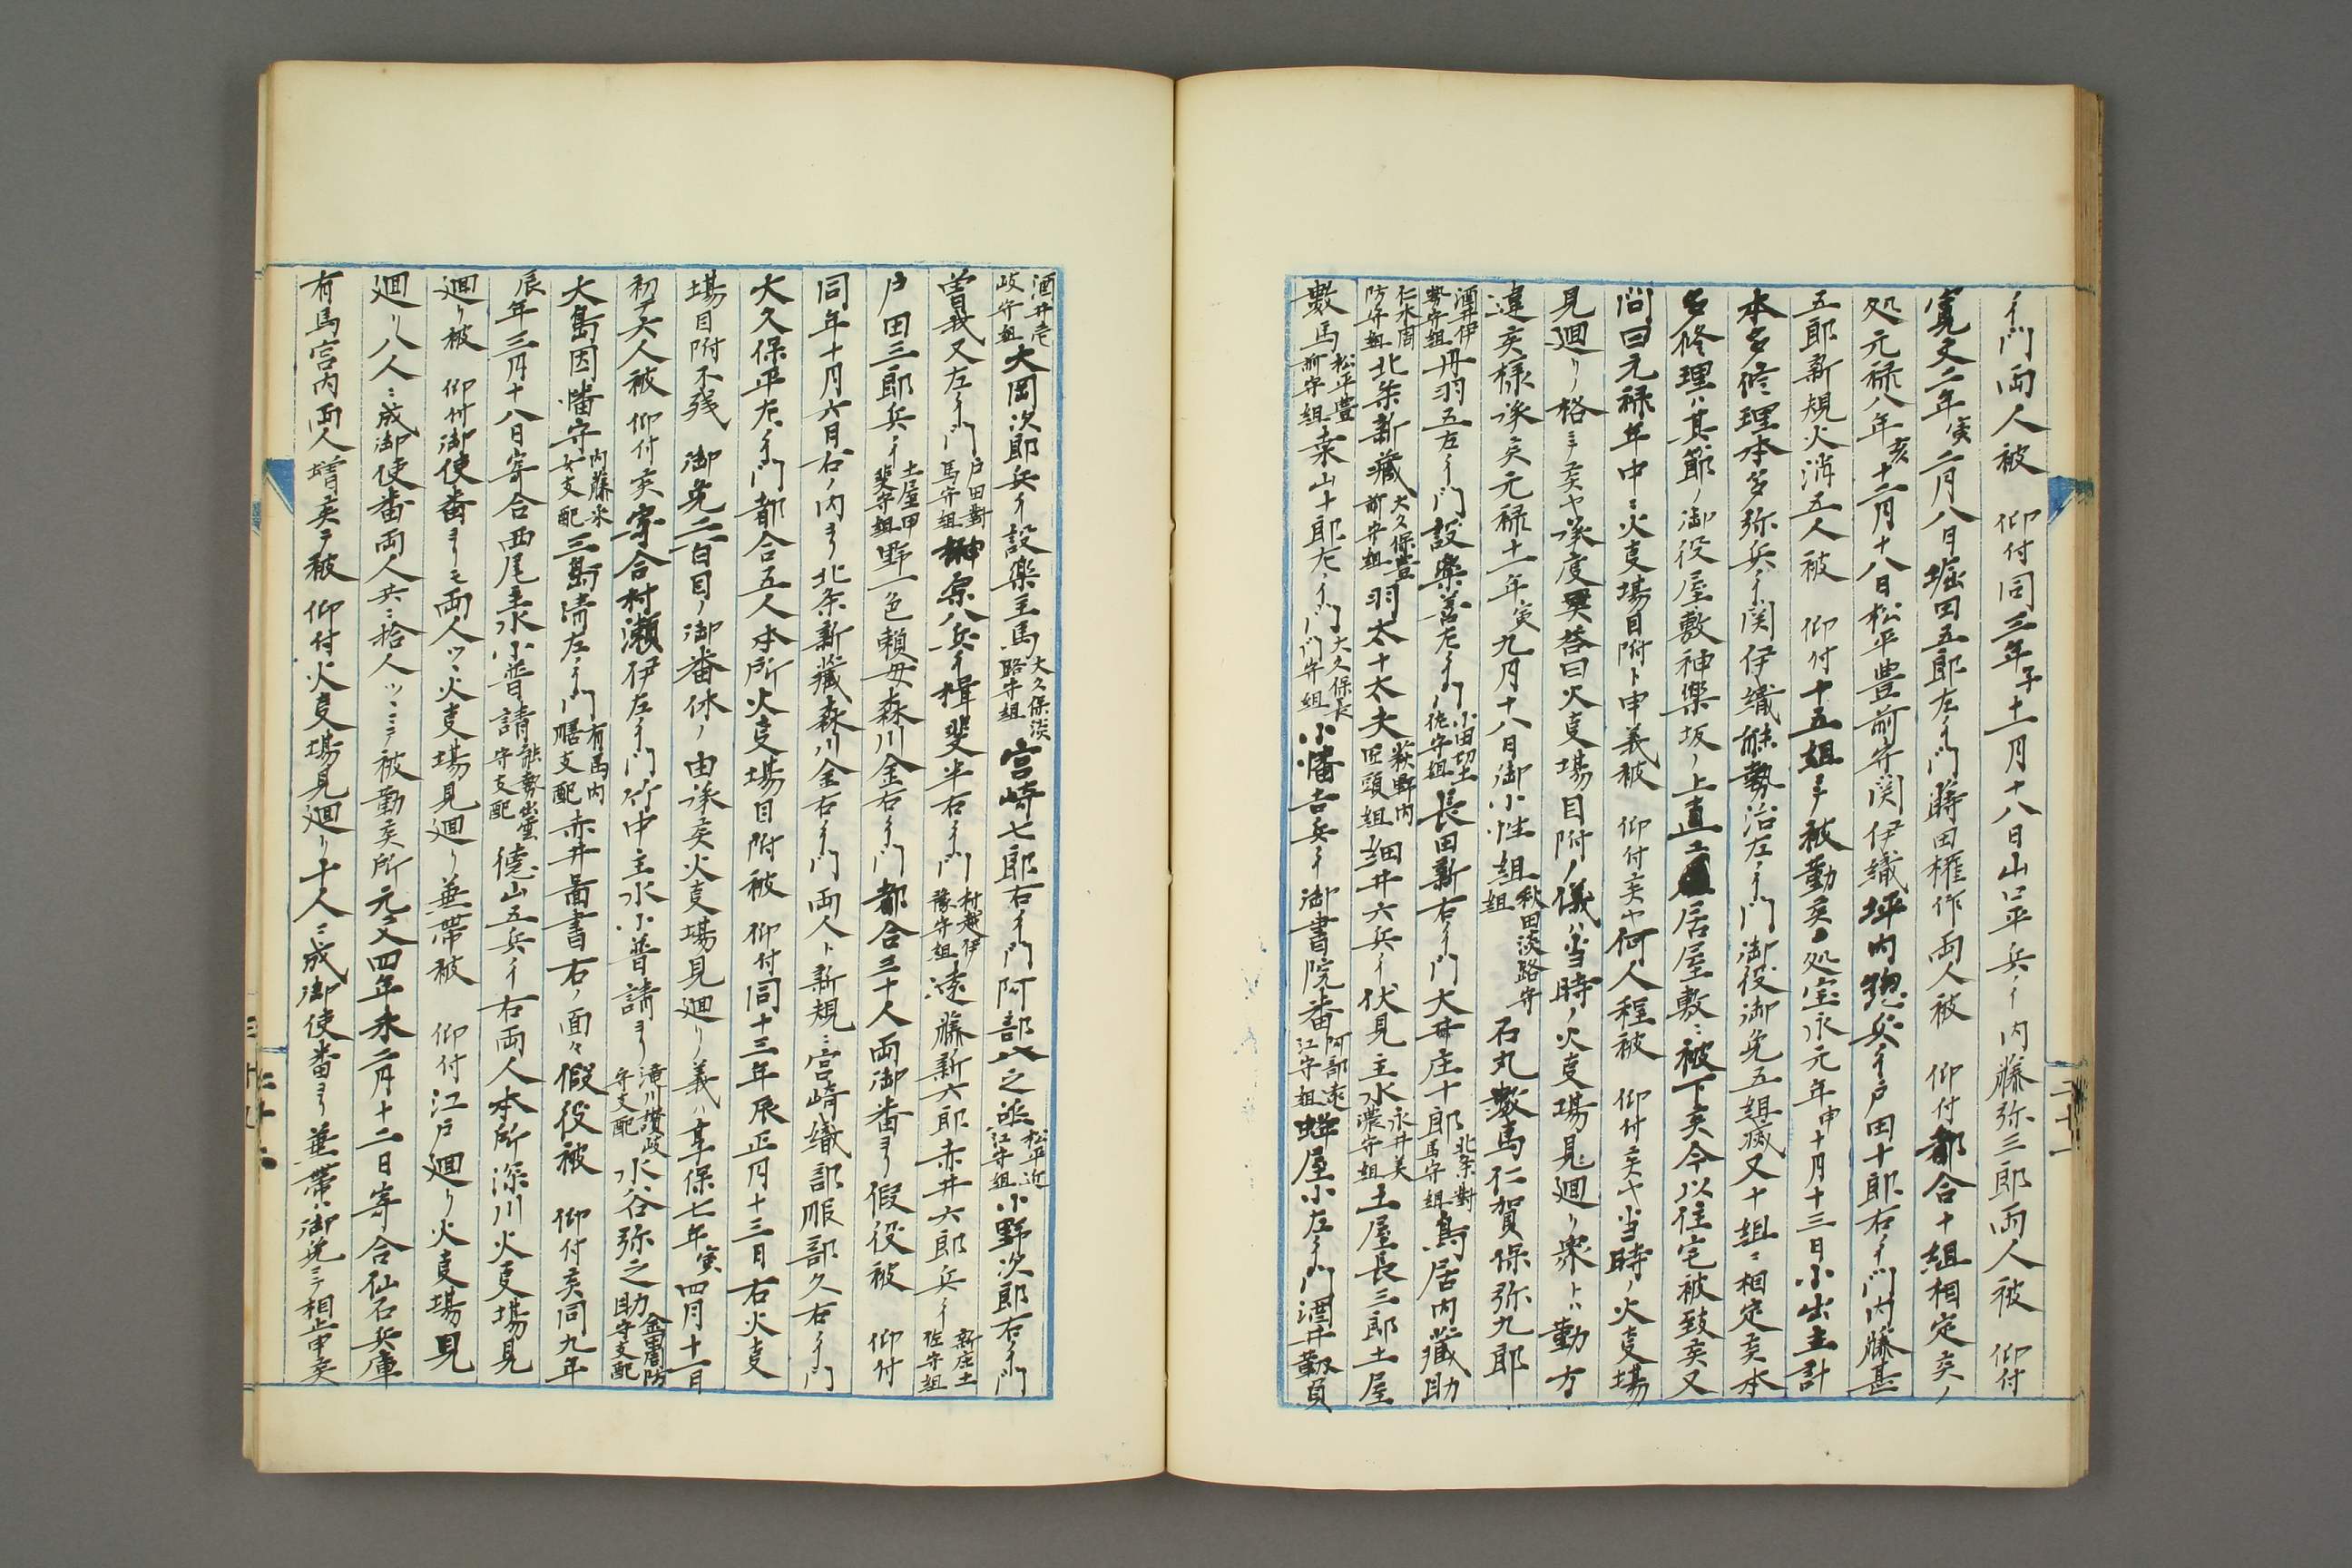 彳門両人被　仰付同三年子十一月十八日山口平兵彳内藤弥三郎両人被　仰付
寛文二年寅二月八日堀田五郎左彳門蒔田権作両人被　仰付都合十組相定矣ノ
処元禄八年亥十二月十八日松平豊前守関伊織坪内惣兵彳戸田十郎右彳門内藤甚
五郎新規火消五人被　仰付十五組ニテ被勤矣処宝永元年申十月十三日小出主計
本多修理本多弥兵彳関伊織能勢治左彳門御役御免五組滅又十組ニ相定矣本
多修理ハ其節ノ御役屋敷神楽坂ノ上直ニ居屋敷ニ被下矣今以住宅被致矣又
問曰元禄年中ニ火㕝場目附ト申義被　仰付矣ヤ何人程被　仰付矣ヤ当時ノ火㕝場
見廻リノ格ニテ矣ヤ承度矣答曰火㕝場目附ノ儀ハ当時ノ火㕝場見廻リ衆トハ勤方
違矣様承矣元禄十一年寅九月十八日御小性組秋田淡路守組石丸数馬仁賀保弥九郎
酒井伊勢守組丹羽五左彳門設楽善左彳門小田切土佐守組長田新右彳門大井庄十郎北条対馬守組鳥居内蔵助
仁木周防守組北条新蔵大久保豊前守組羽太十太夫萩野内匠頭組細井六兵彳伏見主水永井美濃守組土屋長三郎土屋
数馬松平豊前守組桒山十郎左彳門大久保長門守組小幡吉兵彳御書院番阿部遠江守組蜂屋小左彳門酒井靱負
酒井壱岐守組大岡次郎兵彳設楽主馬大久保淡路守組宮崎七郎右彳門阿部八之丞松平近江守組小野次郎右彳門
曽我又左彳門戸田対馬守組榊原八兵彳揖斐半右彳門村越伊豫守組遠藤新六郎赤井六郎兵彳新庄土佐守組
戸田三郎兵彳土屋甲斐守組野一色頼母森川金右彳門都合三十人両御番ヨリ假役被　仰付
同年十月六日右ノ内ヨリ北条新蔵森川金右彳門両人ト新規ニ宮崎織部服部久右彳門
大久保平左彳門都合五人本所火㕝場目附被　仰付同十三年辰正月十三日右火㕝
場目附不残　御免二百目ノ御番休ノ由承矣火㕝場見廻リノ義ハ享保七年寅四月十一日
初テ六人被　仰付矣寄合村瀬伊左彳門竹中主水小普請ヨリ滝川讃岐守支配水谷弥之助金田周防守支配
大島因幡守内藤求女支配三嶋清左彳門有馬内膳支配赤井啚書右ノ面々假役被　仰付矣同九年
辰年三月十八日寄合西尾主水小普請能勢出雲守支配德山五兵彳右両人本所深川火㕝場見
廻リ被　仰付御使番ヨリモ両人ツヽ火㕝場見廻リ兼帯被　仰付江戸廻リ火㕝場見
廻リ八人ニ成御使番両人共ニ拾人ツヽニテ被勤矣所元文四年未二月十二日寄合仙石兵庫
有馬宮内両人増矣テ被　仰付火㕝場見廻リ十人ニ成御使番ヨリ兼帯ハ御免ニテ相止申矣